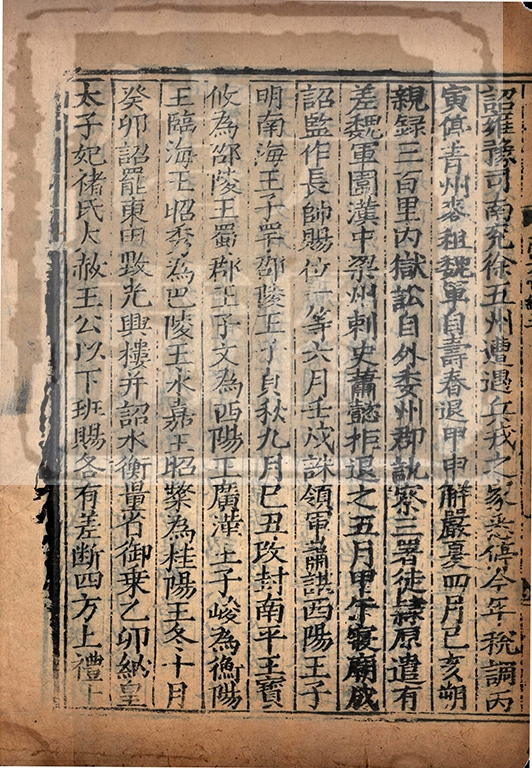 詔雍豫司南兖徐五州遭遇兵戎之家悉停今年稅調丙
寅停青州麥租魏軍自壽春退甲申解嚴夏四月己亥朔
親録三百里内獄訟自外委州郡訊察三署徒隷原遣有
差魏軍圍漢中梁州刺史蕭懿拒退之五月甲午寢廟成
詔監作長帥賜位一等六月壬戌誅領軍蕭諶西陽王子
明南海王子罕邵陵王子貞秋九月己丑改封南平王寶
攸為邵陵王蜀郡王子文為西陽王廣漢王子峻為衡陽
王臨海王昭秀為巴陵王永嘉王昭粲為桂陽王冬十月
癸卯詔罷東田毀光興樓并詔水衡量省御乗乙卯納皇
太子妃褚氏大赦王公以下班賜各有差断四方上禮十